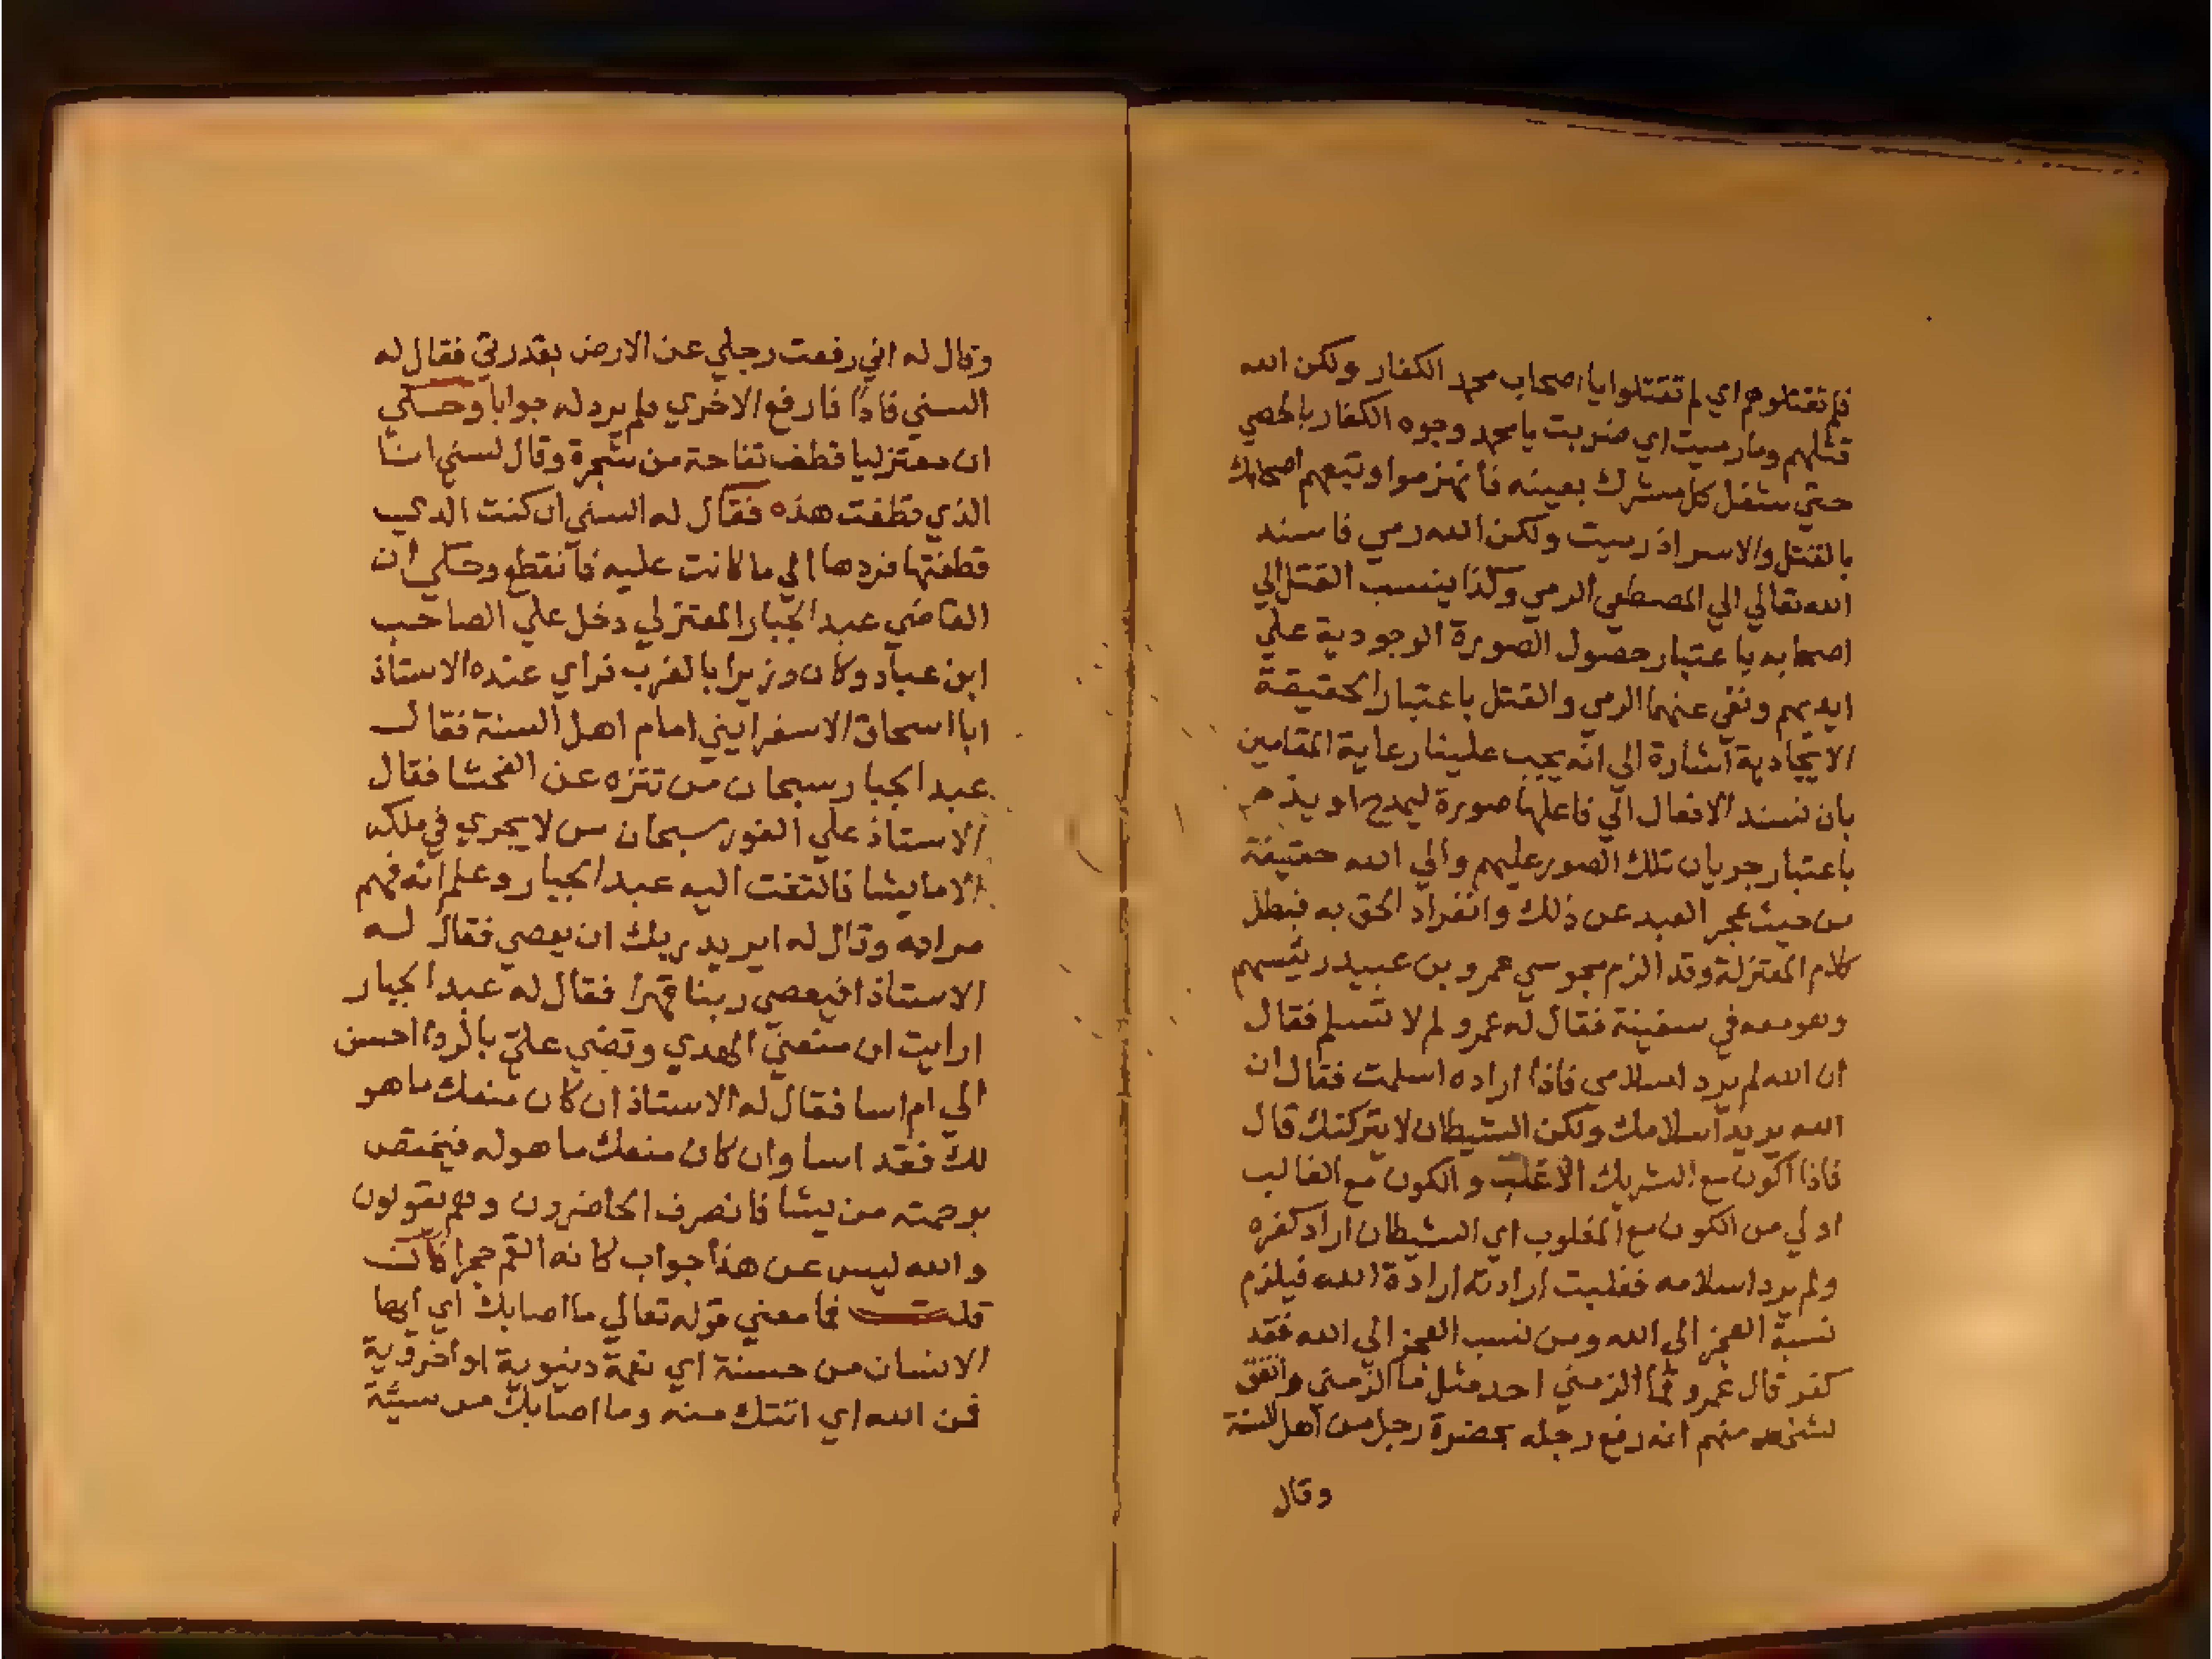 فلم تقتلوهم اي لم تقتلوا يا اصحاب محمد الكفار ولكن الله
قتلهم وما رميت اي ضربت يا محمد وجوه الكفار بالحصي
حتي شغل كل مشرك بعينه فانهزموا وتبعهم اصحابك
بالقتل والاسر اذ رميت ولكن الله رمي فاسند
الله تعالي الي المصطفي الرمي وكذا ينسب القتل الي
اصحابه باعتبار حصول الصورة الوجودية علي
ايديهم ونفي عنهما الرمي والقتل باعتبار الحقيقة
الايجادية اشارة الي انه يجب علينا رعاية المقامين
بان نسند الافعال الي فاعلها صورة ليمدح او يذم
باعتبار جريان تلك الصور عليهم والي الله حقيقة
من حيث عجز العبد عن ذلك وانفراد الحق به فبطل
كلام المعتزلة وقد الزم مجوسي عمرو بن عبيد رئيسهم
وهو معه في سفينة فقال له عمرو لم لا تسلم فقال
ان الله لم يرد اسلامي فاذا اراده اسلمت فقال ان
الله يريد اسلامك ولكن الشيطان لا يتركنك قال
فاذا اكون مع الشريك الاغلب والكون مع الغالب
اولي من الكون مع المغلوب اي الشيطان اراد كفره
ولم يرد اسلامه فغلبت ارادته ارادة الله فيلزم
نسبة العجز الي الله ومن نسب العجز الي الله فقد
كفر قال عمرو فما الزمني احد مثل ما الزمني واتفق
لشخص منهم انه رفع رجله بحضرة رجل من اهل السنة
وقال
وقال له اني رفعت رجلي عن الارض بقدرتي فقال له
السني فاذا فارفع الاخري فلم يرد له جوابا وحكي
ان معتزليا قطف تفاحة من شجرة وقال لسني انا
الذي قطفت هذه فقال له السني ان كنت الذي
قطفتها فردها الي ما كانت عليه فانقطع وحكي ان
القاضي عبد الجبار المعتزلي دخل علي الصاحب
ابن عباد وكان وزيرا بالغرب فراي عنده الاستاذ
ابا اسحاق الاسفرايني امام اهل السنة فقال
عبد الجبار سبحان من تنزه عن الفحشا فقال
الاستاذ علي الفور سبحان من لا يجري في ملكه
الا ما يشا فالتفت اليه عبد الجبار وعلم انه فهم
مراده وقال له ايريد ربك ان يعصي فقال له
الاستاذ افيعصي ربنا قهرا فقال له عبد الجبار
ارايت ان منعني الهدي وقضي علي بالردا احسن
الي ام اسا فقال له الاستاذ ان كان منعك ما هو
لك فقد اسا وان كان منعك ما هو له فيختص
برحمته من يشا فانصرف الحاضرون وهم يقولون
والله ليس عن هذا جواب كانه القم حجرا فان
قلت فما معني قوله تعالي ما اصابك اي ايها
الانسان من حسنة اي نعمة دنيوية او اخروية
فمن الله اي اتتك منه وما اصابك من سيئة